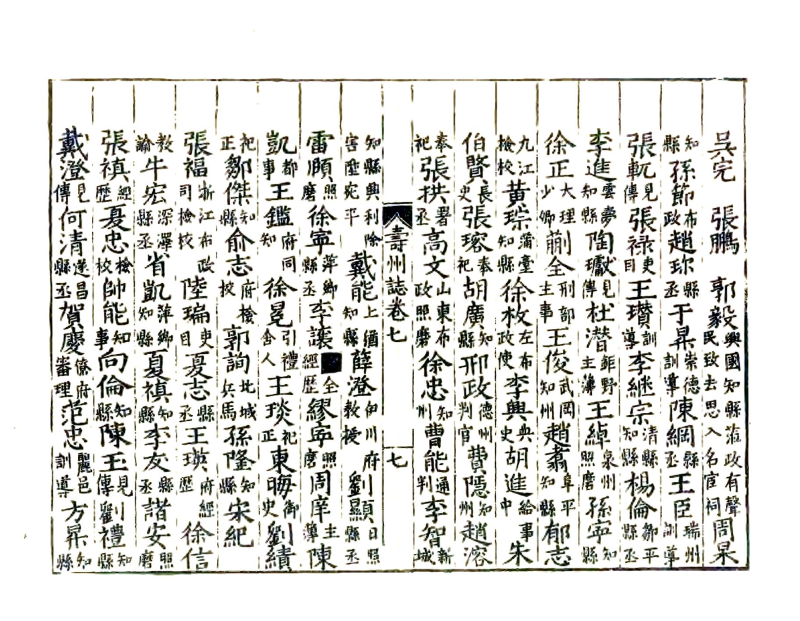 吳完 張鵬 郭毅 興國知縣蒞政有聲民致去思入名宦祠 周杲
知縣 孫節 布政 趙珎 縣 于杲 崇德訓導 陳綱 縣 王臣 瑞州訓導
張䡄 見傳 張祿 吏目 王瓚 訓導 李継宗 清縣知縣 楊倫 鄒平縣丞
李進 雲夢知縣 陶巘 見傳 杜潛 鉅野主簿 王綽 泉州照磨 孫寧 知縣
徐正 大理少卿 蒯全 刑部主事 王俊 武岡知州 趙翥 阜平知縣 郁志
九江檢校 黃琮 蒲臺知縣 徐枚 左布政使 李興 典史 胡進 給事中 朱
伯賢 長史 張瑢 奉祀 胡廣 知縣 邢政 德州判官 費隱 知州 趙溶
奉祀 張拱 署丞 高文 山東布政照磨 徐忠 知州 曹能 通判 李智 新城
壽州誌卷七 七
知縣興利除害歷宛平 戴能 上猶知縣 薛澄 川府教授 劉顯 日照縣丞
雷順 照磨 徐寧 萍鄉縣丞 李讓 經歷 全 繆寧 照磨 周庠 主簿 陳
凱 都事 王鑑 府同知 徐晃 引禮舍人 王琰 祀正 東晦 御史 劉績
祀正 鄒傑 知縣 俞志 府檢校 郭詢 北城兵馬 孫隆 知縣 宋紀
張福 浙江布政司檢校 陸瑞 吏目 夏志 縣丞 王瑛 府經歷 徐信
教諭 牛宏 深澤縣丞 省凱 萍鄉知縣 夏禎 知縣 李友 縣丞 諸安 照磨
張禛 經歷 夏忠 檢校 帥能 知事 向倫 知縣 陳玉 見傳 劉禮 知縣
戴澄 見傳 何清 遂昌縣丞 賀慶 府審理 范忠 麗邑訓導 方昇 知縣